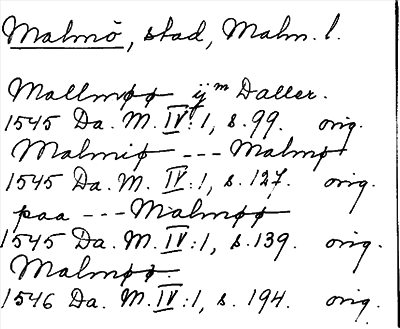 Malmö, stad, Malm. l.
Mallmøø ijm Daller.
1545 Da. M. IV:1, s. 99. orig.
Malmiø --- Malmø
1545 Da. M. IV:1, s. 127. orig.
paa --- Malmøø
1545 Da. M. IV:1, s. 139. orig.
Malmøø.
1546 Da. M. IV:1, s. 194. orig.